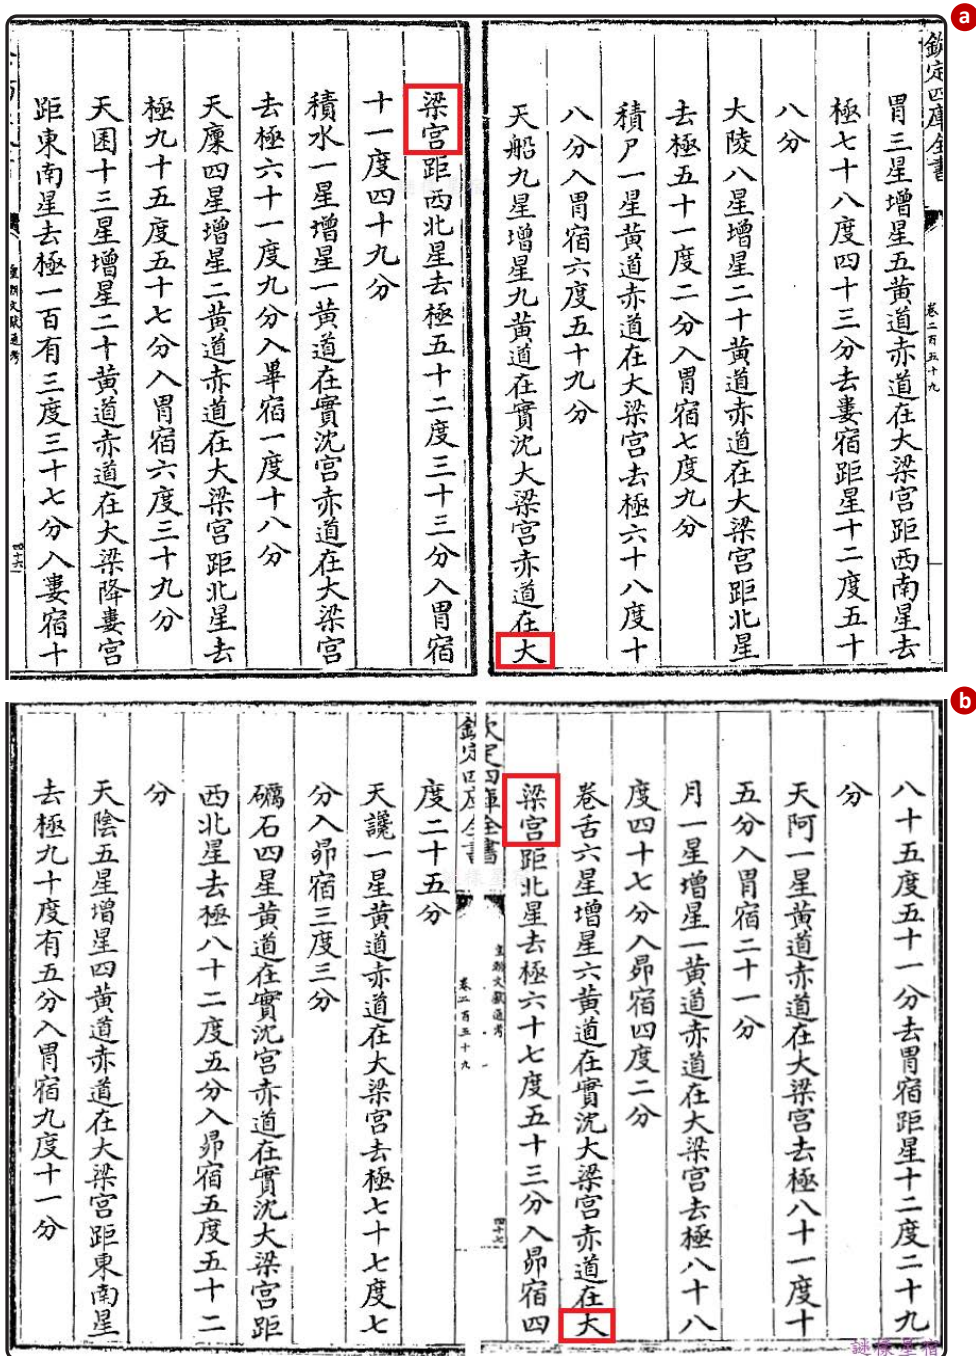 a
欽定四庫全書
卷二百五十九
胃三星增星五黃道赤道在大梁宮距西南星去
極七十八度四十三分去婁宿距星十二度五十
八分
大陵八星增星二十黃道赤道在大梁宮距北星
去極五十一度二分入胃宿七度九分
積尸一星黃道赤道在大梁宮去極六十八度十
八分入胃宿六度五十九分
天船九星增星九黃道在實沈大梁宮赤道在大
梁宮距西北星去極五十二度三十三分入胃宿
十一度四十九分
積水一星增星一黃道在實沈宮赤道在大梁宮
去極六十一度九分入畢宿一度十八分
天廩四星增星二黃道赤道在大梁宮距北星去
極九十五度五十七分入胃宿六度三十九分
天囷十三星增星二十黃道赤道在大梁降婁宮
距東南星去極一百有三度三十七分入婁宿十
皇朝文獻通考
四十六
b
八十五度五十一分去胃宿距星十二度二十九
分
天阿一星黃道赤道在大梁宮去極八十一度十
五分入胃宿二十一分
月一星增星一黃道赤道在大梁宮去極八十八
度四十七分入昴宿四度二分
卷舌六星增星六黃道在實沈大梁宮赤道在大
梁宮距北星去極六十七度五十三分入昴宿四
皇朝文獻通考
四十七
欽定四庫全書
卷二百五十九
度二十五分
天讒一星黃道赤道在大梁宮去極七十七度七
分入昴宿三度三分
礪石四星黃道在實沈宮赤道在實沈大梁宮距
西北星去極八十二度五分入昴宿五度五十二
分
天陰五星增星四黃道赤道在大梁宮距東南星
去極九十度有五分入胃宿九度十一分
謎樣星宿